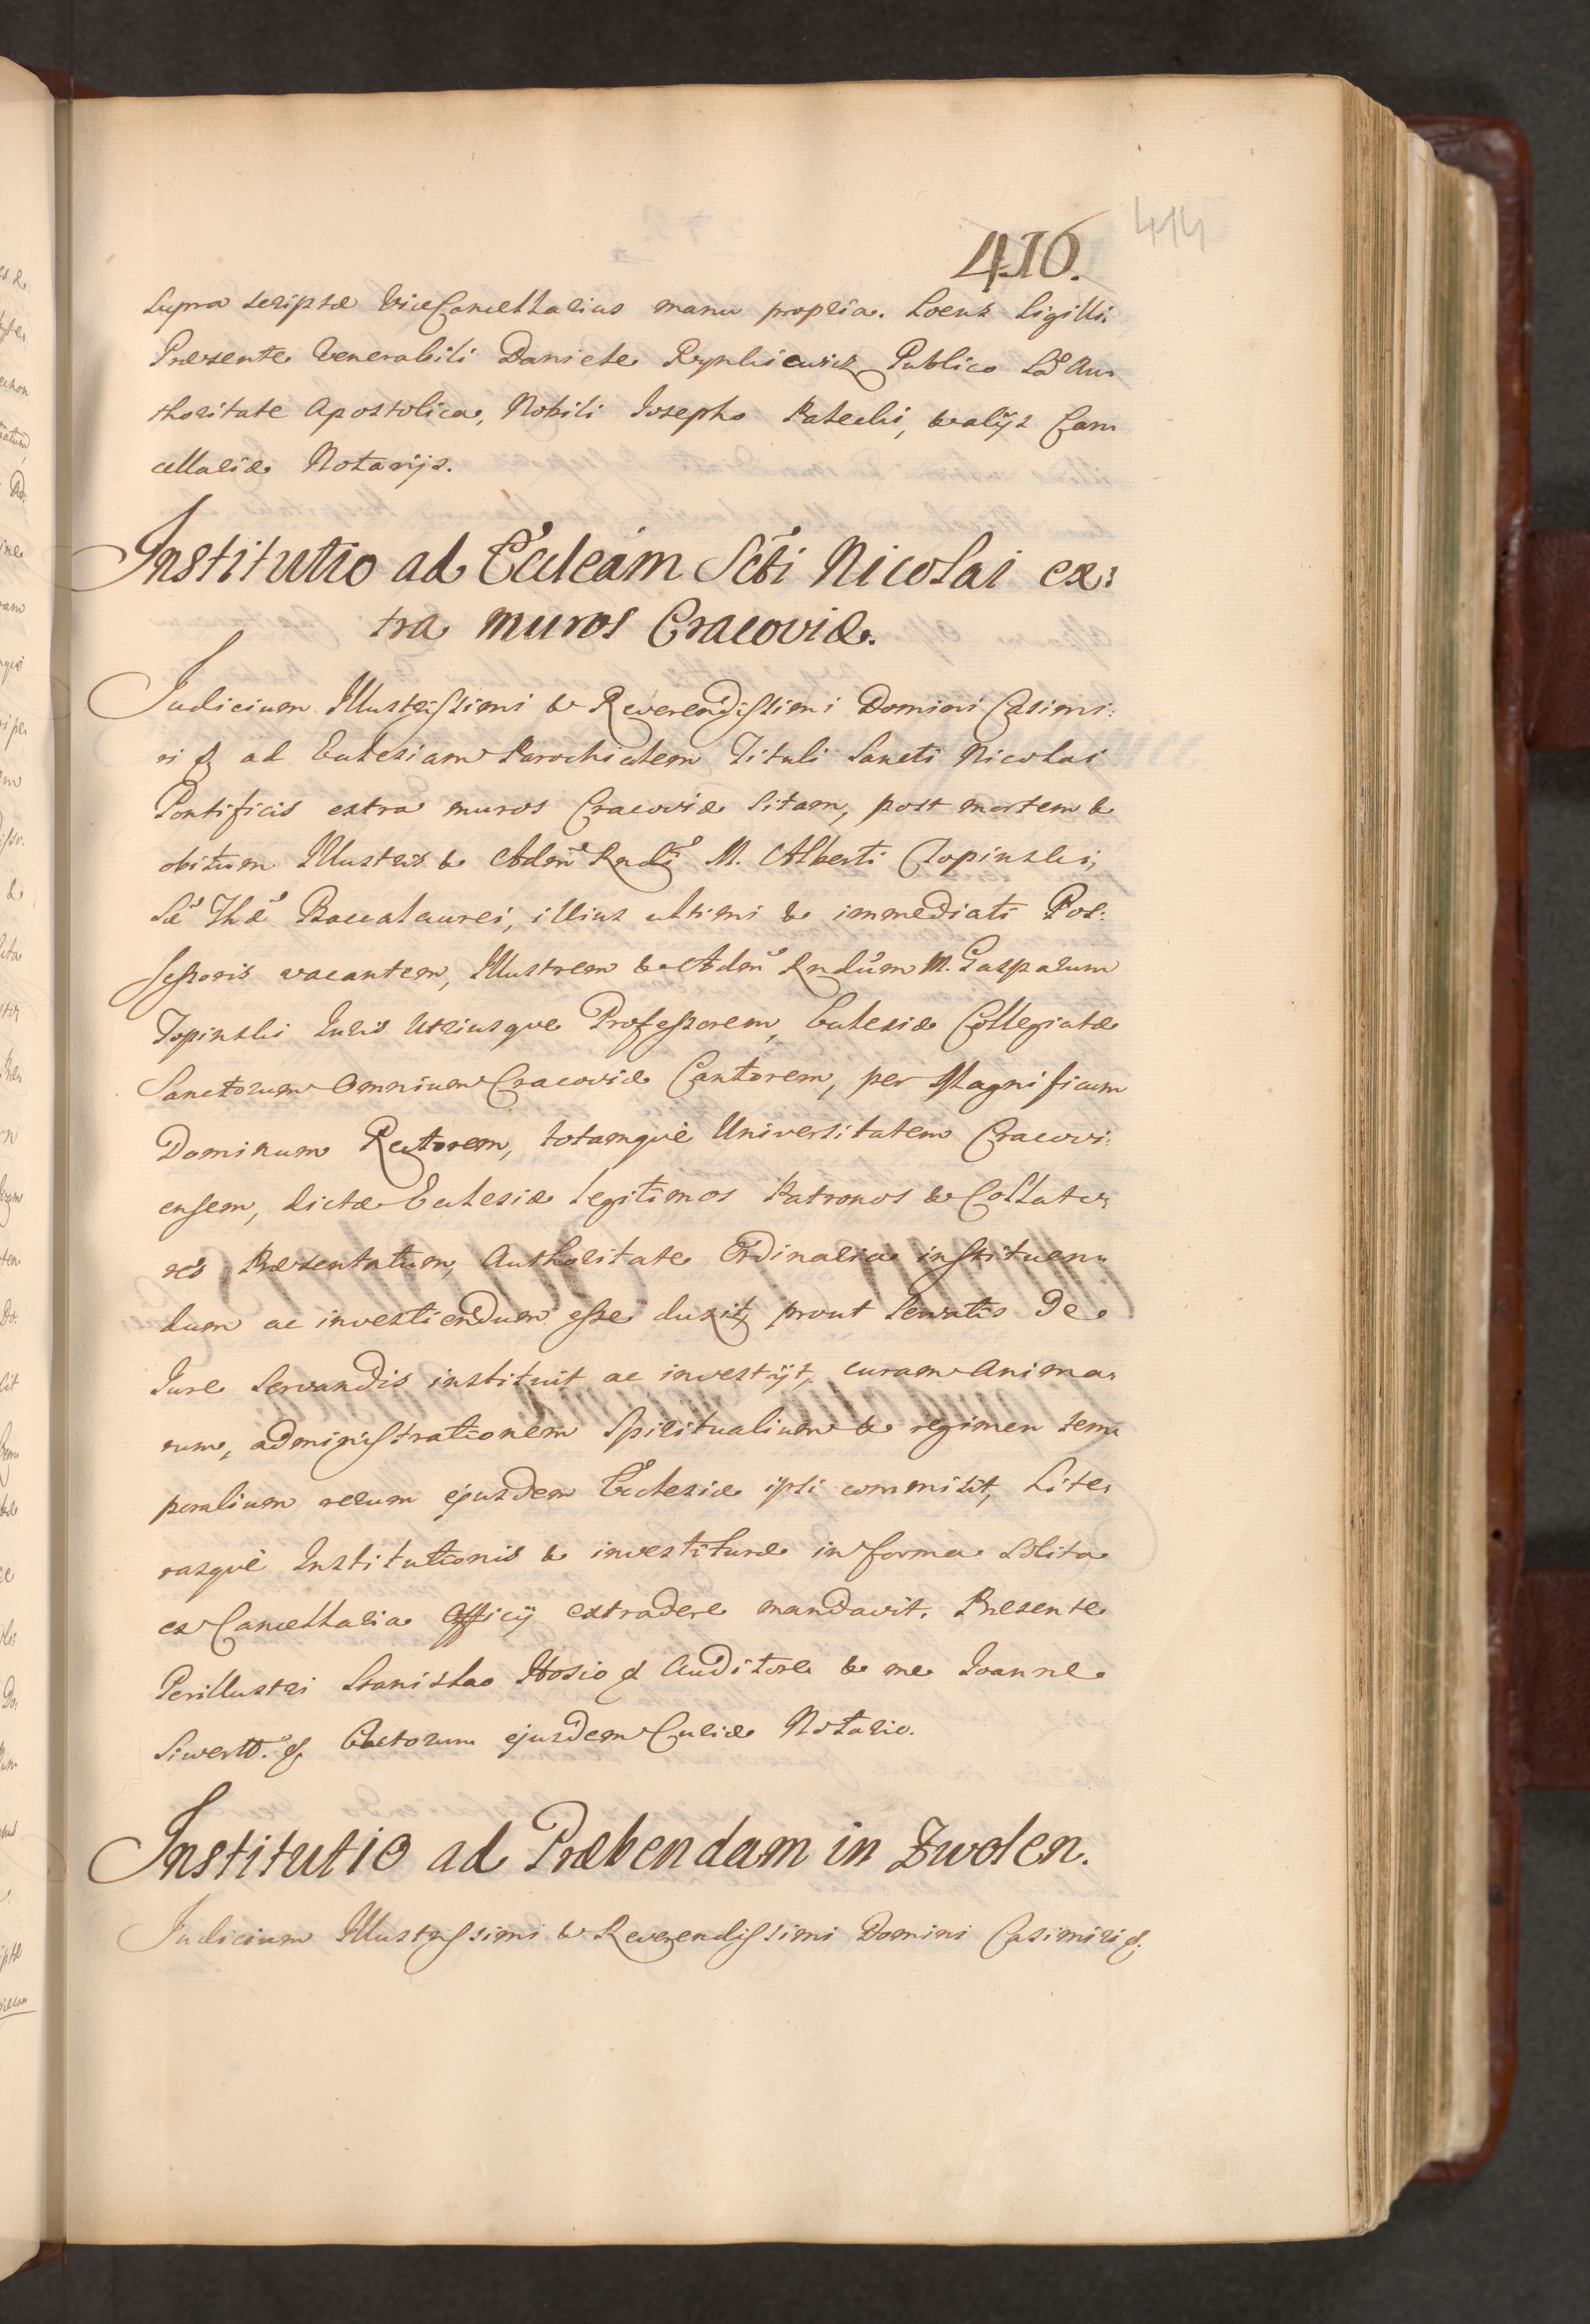 410. 414
supra scriptæ ViceCancellarius manu propria. Locus Sigilli.
Præsente Venerabili Daniele Rynkiewicz Publico Sã Au-
thoritate Apostolica, Nobili Josepho Patecki, & alijs Can-
cellariæ Notarijs.
Institutio ad Eccleam Scti Nicolai ex:
tra muros Cracoviæ.
Judicium Illustrissimi & Reverendissimi Domini Casimi:
ri & ad Ecclesiam Parochialem Tituli Sancti Nicolai
Pontificis extra muros Cracoviæ sitam, post mortem &
obitum Illustris & Adm Rndi M. Alberti Topinski,
Sæ Thæ Baccalaurei, illius ultimi & immediati Pos:
sessoris vacantem, Illustrem & Adm Rndum M. Gasparum
Topinski Juris Utriusque Professorem, Ecclesiæ Collegiatæ
Sanctorum Omnium Cracoviæ Cantorem, per Magnificum
Dominum Rectorem, totamquè Universitatem Cracovi:
ensem, dictæ Ecclesiæ legitimos Patronos & Collato-
res Præsentatum, Authoritate Ordinaria instituen-
dum ac investiendum esse duxit, prout servatis de
Jure servandis instituit ac investijt, curam anima-
rum, administrationem Spiritualium & regimen tem-
poralium rerum ejusdem Ecclesiæ ipsi commisit, Lite-
rasquè Institutionis & investituræ in forma solita
ex Cancellaria Officij extradere mandavit. Præsente
Perillustri Stanislao Hosio & Auditore & me Joanne
Siwerto. & Actorum ejusdem Curiæ Notario.
Institutio ad Præbendam in Zwolen.
Judicium Illustrissimi & Reverendissimi Domini Casimiri &.